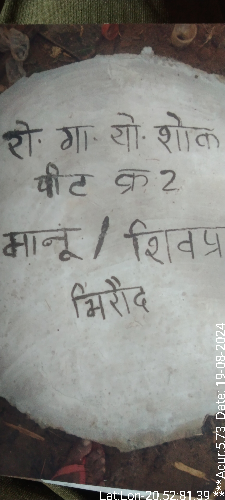 रो. गा. यो. शोक
पीट क्र 2
मानू / शिवप्र
भिरौद
Lat,Lon-20.52,81.39 ***Acur:5.73, Date: 19-08-2024